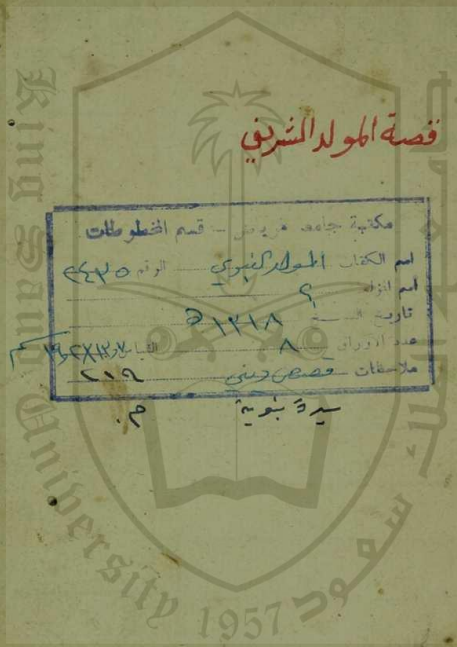 قصة المولد الشريف
مكتبة جامعة الرياض – قسم المخطوطات
اسم الكتاب المولد النبوي الرقم ٢٤٣٥
اسم المؤلف ؟
تاريخ النسخ ١٣١٨ هـ
عدد الاوراق ٨ القياس
ملاحظات قصص ديني ٢١٩
سيرة نبوية م.
King Saud University
1957
جامعة الملك سعود